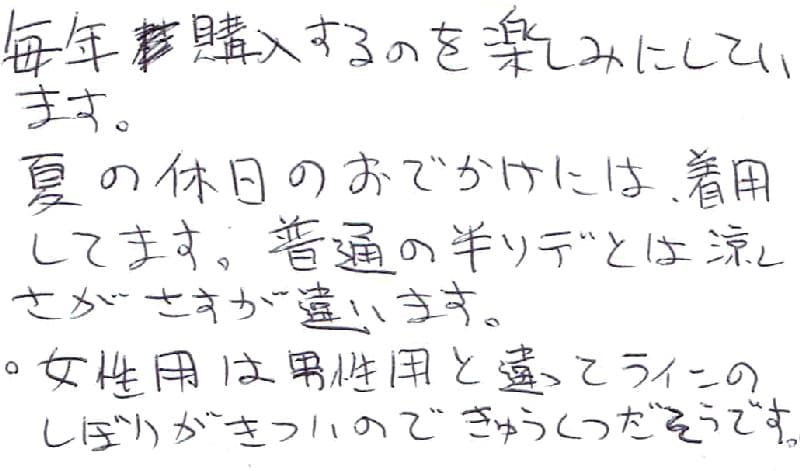 毎年購入するのを楽しみにしてい
ます。
夏の休日のおでかけには、着用
してます。普通の半ソデとは涼し
さがさすが違います。
。女性用は男性用と違ってラインの
しぼりがきついのできゅうくつだそうです。